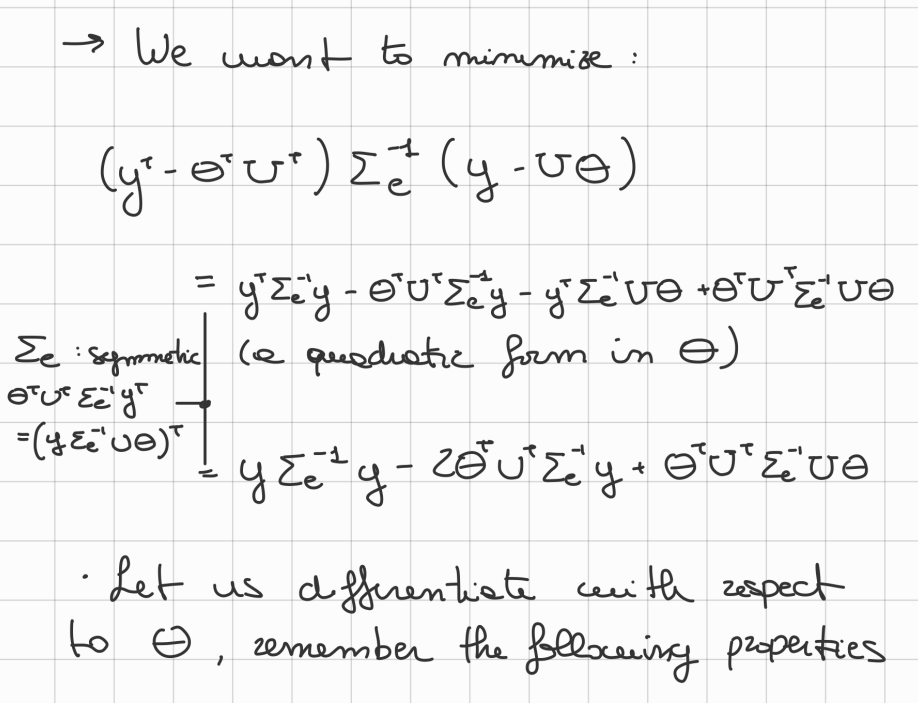 → We want to minimize :
(yᵀ - θᵀUᵀ) Σₑ⁻¹ (y - Uθ)
= yᵀΣₑ⁻¹y - θᵀUᵀΣₑ⁻¹y - yᵀΣₑ⁻¹Uθ + θᵀUᵀΣₑ⁻¹Uθ
Σₑ : symmetric
(a quadratic form in θ)
θᵀUᵀΣₑ⁻¹yᵀ
=(yΣₑ⁻¹Uθ)ᵀ
= yΣₑ⁻¹y - 2θᵀUᵀΣₑ⁻¹y + θᵀUᵀΣₑ⁻¹Uθ
· Let us differentiate with respect
to θ, remember the following properties